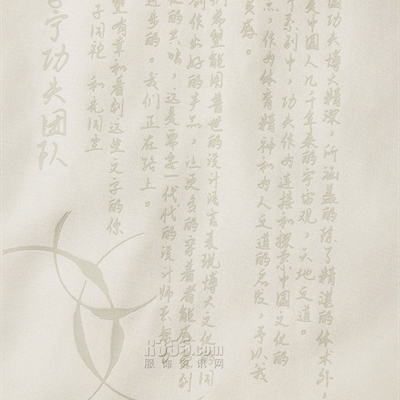 国功夫博大精深，所涵盖的除了精湛的体术外，
是中国人几千年来的宇宙观，天地交道。
个系列中，功夫作为连接和探索中国文化的
点，作为体育精神和为人交道的启发，予以我
灵感。
们希望能用普世的设计语言表现博大文化，同
创作出好的产品，让更多的穿着者能感受到
的共鸣，这是需要一代代的设计师不断
进步的。我们正在路上。
望有幸和看到这些文字的你
子同袍 和光同尘
宁功夫团队
服饰资讯网